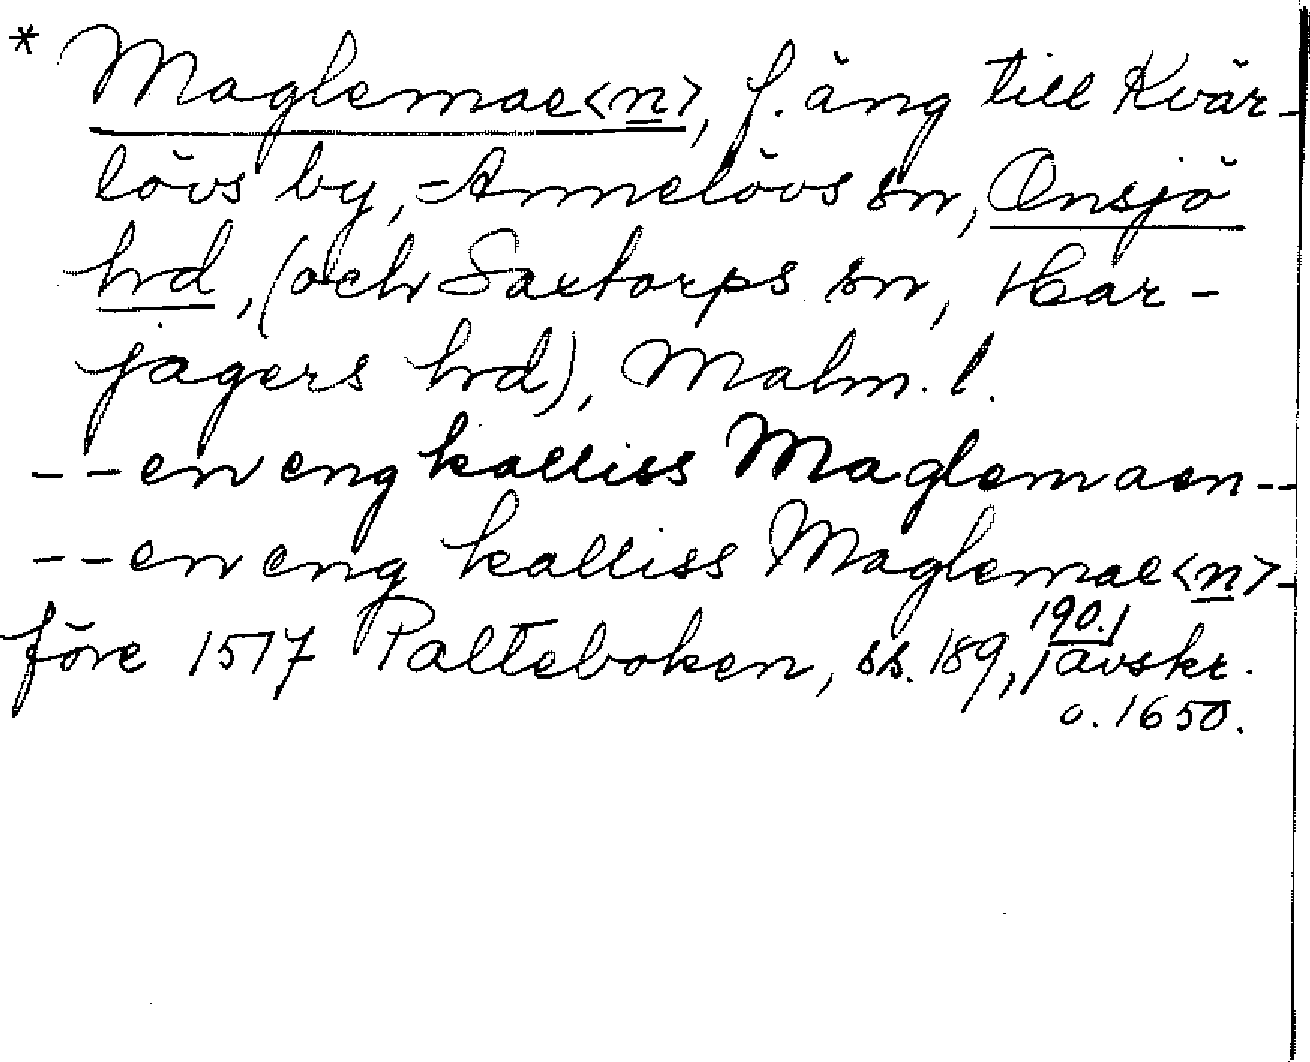 * Maglemae<n>, f. äng till Kvär-
lövs by, Annelövs sn, Onsjö
hrd, (och Saxtorps sn, Har-
jagers hrd), Malm. l.
-- en eng kalliss Maglemaen --
-- en eng kalliss Maglemae<n> -
före 1517 Palteboken, ss. 189, 190, avskr.
o. 1650.